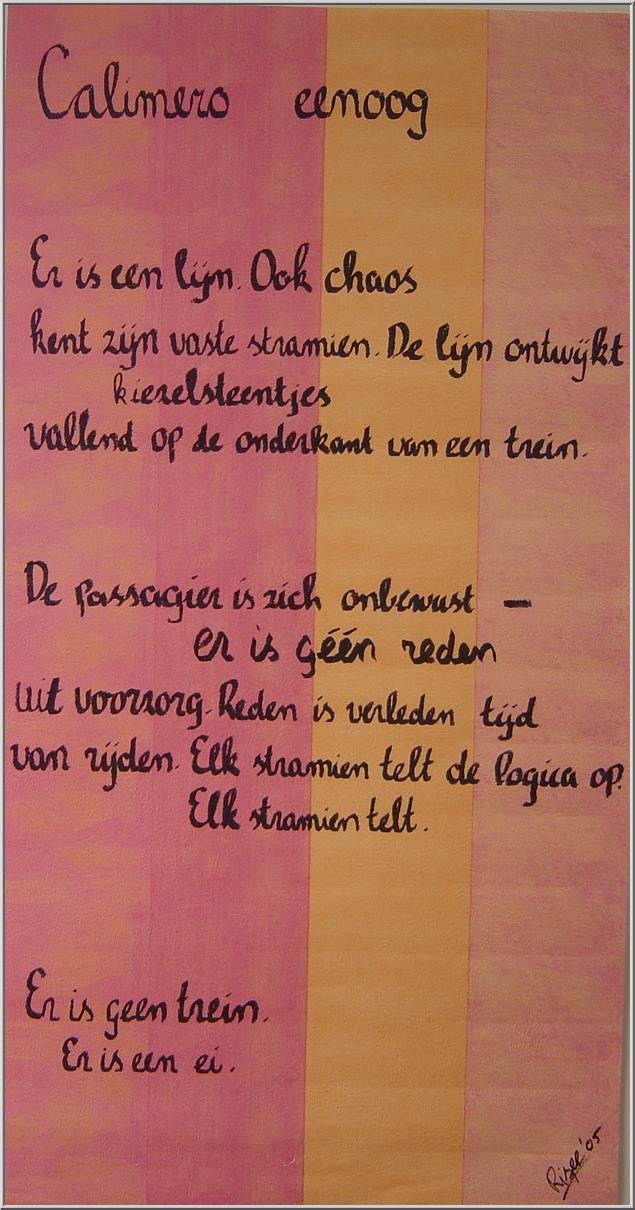 Calimero eenoog
Er is een lijn. Ook chaos
kent zijn vaste stramien. De lijn ontwijkt
kiezelsteentjes
vallend op de onderkant van een trein.
De passagier is zich onbewust –
er is géén reden
uit voorzorg. Reden is verleden tijd
van rijden. Elk stramien telt de logica op.
Elk stramien telt.
Er is geen trein.
Er is een ei.
'05